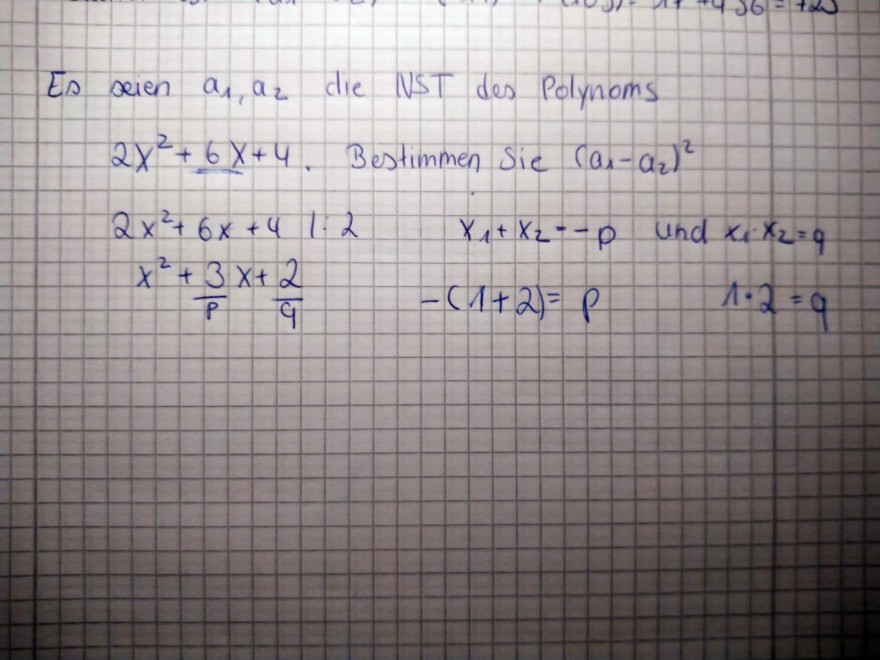 Es seien a₁, a₂ die NST des Polynoms
2x² + 6x + 4. Bestimmen Sie (a₁ - a₂)²
2x² + 6x + 4 |: 2 x₁ + x₂ = -p und x₁ · x₂ = q
x² + 3x + 2
p q -(1+2) = p 1 · 2 = q